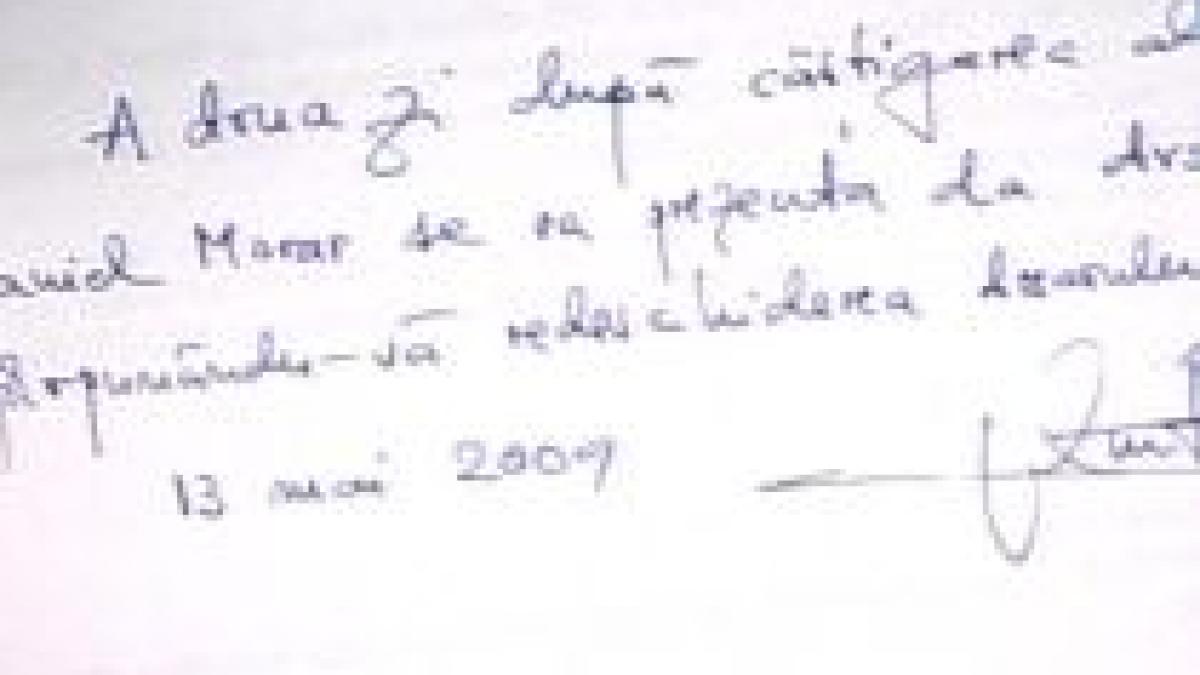 A doua zi după câștigarea al
aniel Morar se va prezenta la
propunându-vă redeschiderea dosarului
13 mai 2009